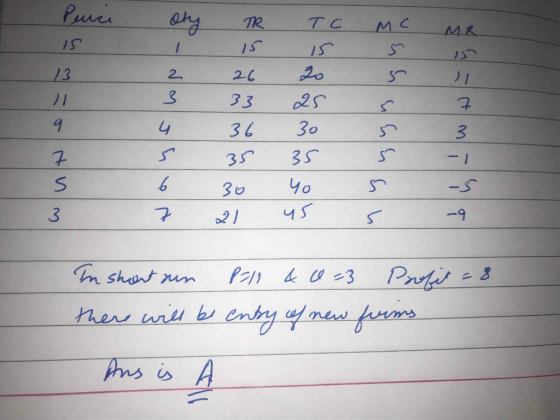 Price Qty TR TC MC MR
15 1 15 15 5 15
13 2 26 20 5 11
11 3 33 25 5 7
9 4 36 30 5 3
7 5 35 35 5 -1
5 6 30 40 5 -5
3 7 21 45 5 -9
In short run P=11 & Q=3 Profit = 8
there will be entry of new firms
Ans is A